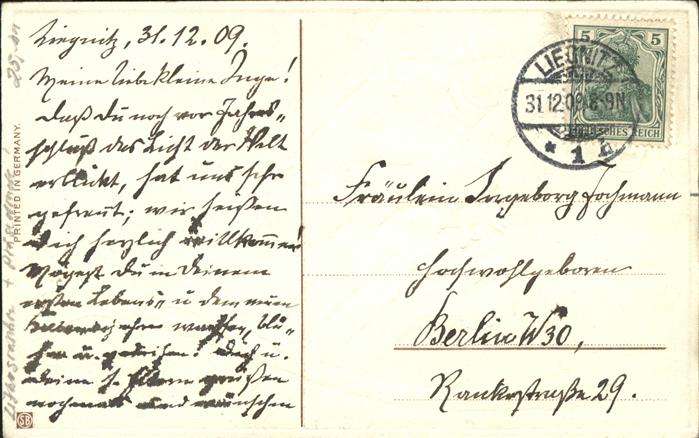 Liegnitz, 31.12.09.
Meine liebe kleine Inge!
Daß du noch vor Jahres-
schluß das Licht der Welt
erblickt, hat uns sehr
gefreut; wir heißen
dich herzlich willkommen!
Mögest du in deinem
ersten Lebens- u dem neuen
wachsen, blü-
hen u. gedeihen! Dich u.
deine l. Eltern grüßen
nochmals und wünschen
PRINTED IN GERMANY.
25,-
SB
LIEGNITZ
31.12.09.8-9N
* 1
5 5
DEUTSCHES REICH
Fräulein Ingeborg Jochmann
Hochwohlgeboren
Berlin W30,
Rankestraße 29.